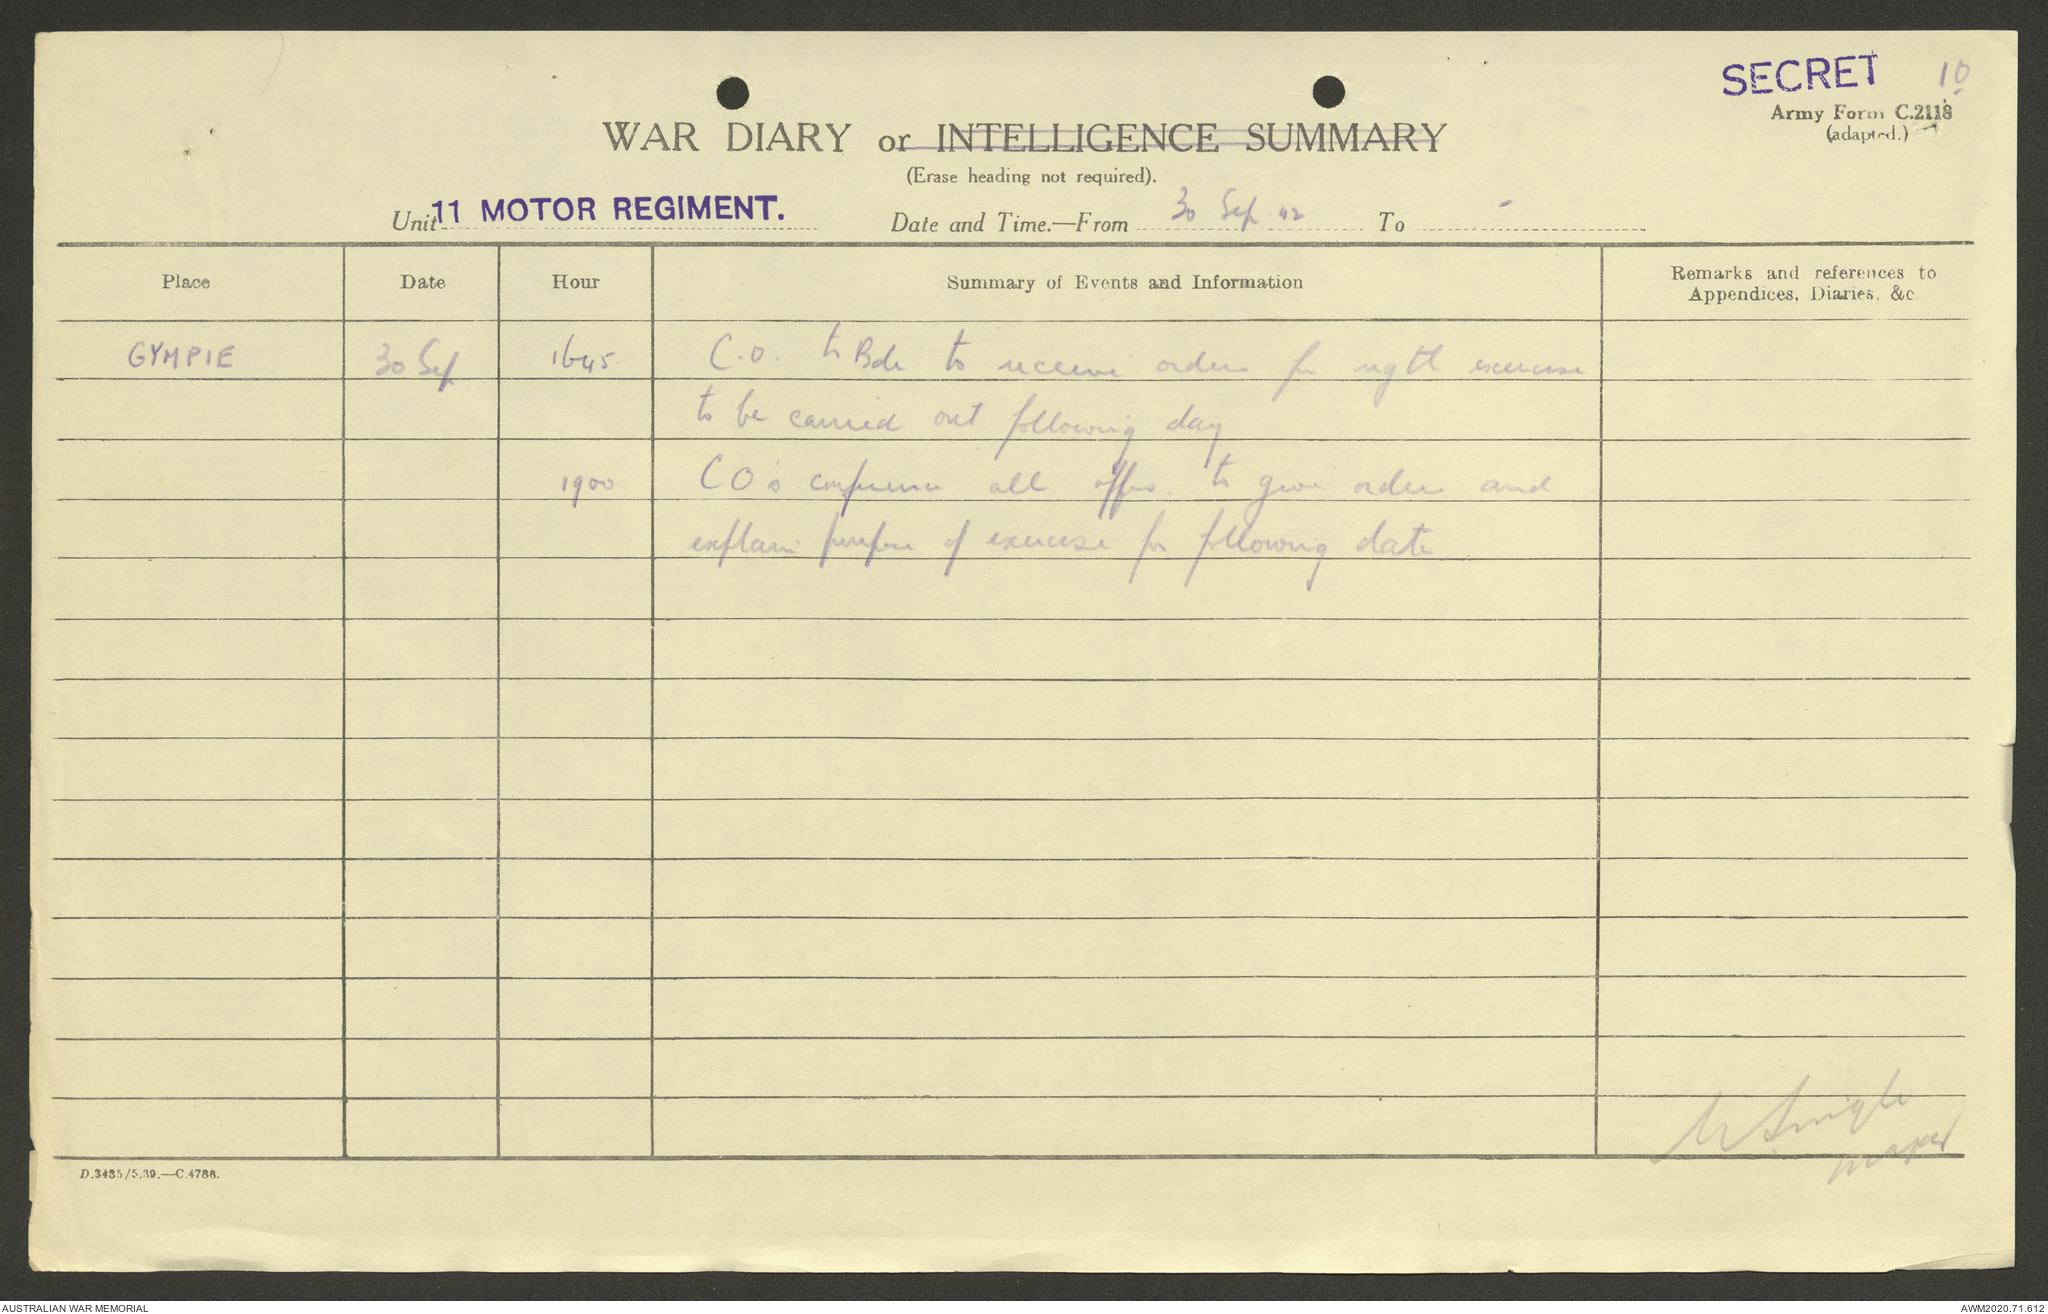 SECRET 10
Army Form C.2118
(adapted.)
WAR DIARY or INTELLIGENCE SUMMARY
(Erase heading not required).
Unit 11 MOTOR REGIMENT. Date and Time.—From 30 Sep 42 To -
Place Date Hour Summary of Events and Information Remarks and references to
Appendices, Diaries, &c
GYMPIE 30 Sep 1645 C.O. to Bde to receive orders for regtl exercise
to be carried out following day
1900 CO's conference all offrs. to give orders and
explain purpose of exercise for following date
Major
D.3435/5.39.—C.4786.
AUSTRALIAN WAR MEMORIAL AWM2020.71.612